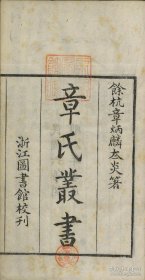 餘杭章炳麟太炎箸
章氏叢書
浙江圖書館校刊